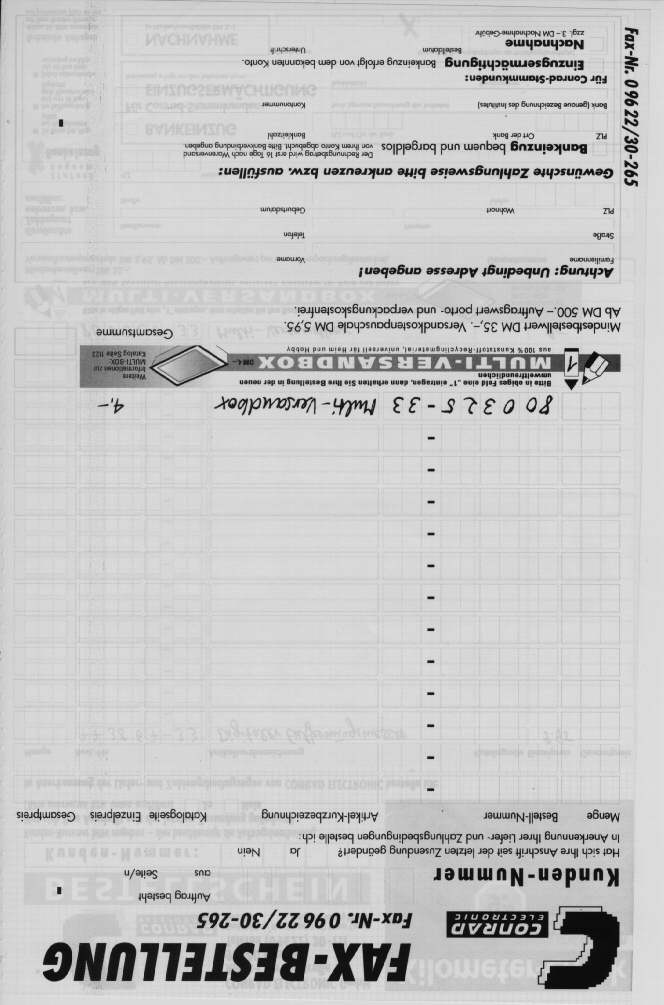 FAX-BESTELLUNG
CONRAD
ELECTRONIC
Fax-Nr. 0 96 22/30-265
Auftrag besteht
aus Seite/n
Kunden-Nummer
Hat sich Ihre Anschrift seit der letzten Zusendung geändert? Ja Nein
In Anerkennung Ihrer Liefer- und Zahlungsbedingungen bestelle ich:
Menge Bestell-Nummer Artikel-Kurzbezeichnung Katalogseite Einzelpreis Gesamtpreis
80 03 25 - 33 Multi-Versandbox 4,-
Bitte in obiges Feld eine „1" eintragen, dann erhalten Sie Ihre Bestellung in der neuen
umweltfreundlichen
1
MULTI-VERSANDBOX DM 4,–
aus 100% Kunststoff-Recyclingmaterial, universell für Heim und Hobby
Weitere
Informationen zur
MULTI-BOX:
Katalog Seite 1122
Mindestbestellwert DM 35,–. Versandkostenpauschale DM 5,95.
Ab DM 500,– Auftragswert porto- und verpackungskostenfrei.
Gesamtsumme
Achtung: Unbedingt Adresse angeben!
Familienname Vorname
Straße Telefon
PLZ Wohnort Geburtsdatum
Gewünschte Zahlungsweise bitte ankreuzen bzw. ausfüllen:
Bankeinzug bequem und bargeldlos
Der Rechnungsbetrag wird erst 16 Tage nach Warenversand
von Ihrem Konto abgebucht. Bitte Bankverbindung angeben.
PLZ Ort der Bank Bankleitzahl
Bank (genaue Bezeichnung des Institutes) Kontonummer
Für Conrad-Stammkunden:
Einzugsermächtigung Bankeinzug erfolgt von dem bekannten Konto.
Nachnahme
zzgl. 3,– DM Nachnahme-Gebühr
Bestelldatum Unterschrift
Fax-Nr. 0 96 22/30-265